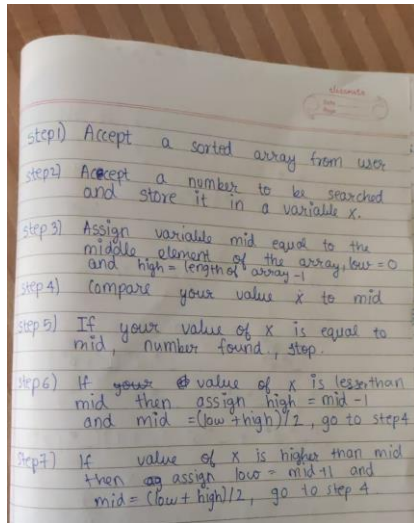 classmate
Date
Page
step1) Accept a sorted array from user
step2) Accept a number to be searched
and store it in a variable x.
step 3) Assign variable mid equal to the
middle element of the array, low = 0
and high = length of array -1
step 4) Compare your value x to mid
step 5) If your value of x is equal to
mid, number found, stop.
step 6) If value of x is less than
mid then assign high = mid -1
and mid = (low + high)/2, go to step 4
Step 7) If value of x is higher than mid
then assign low = mid +1 and
mid = (low + high)/2, go to step 4